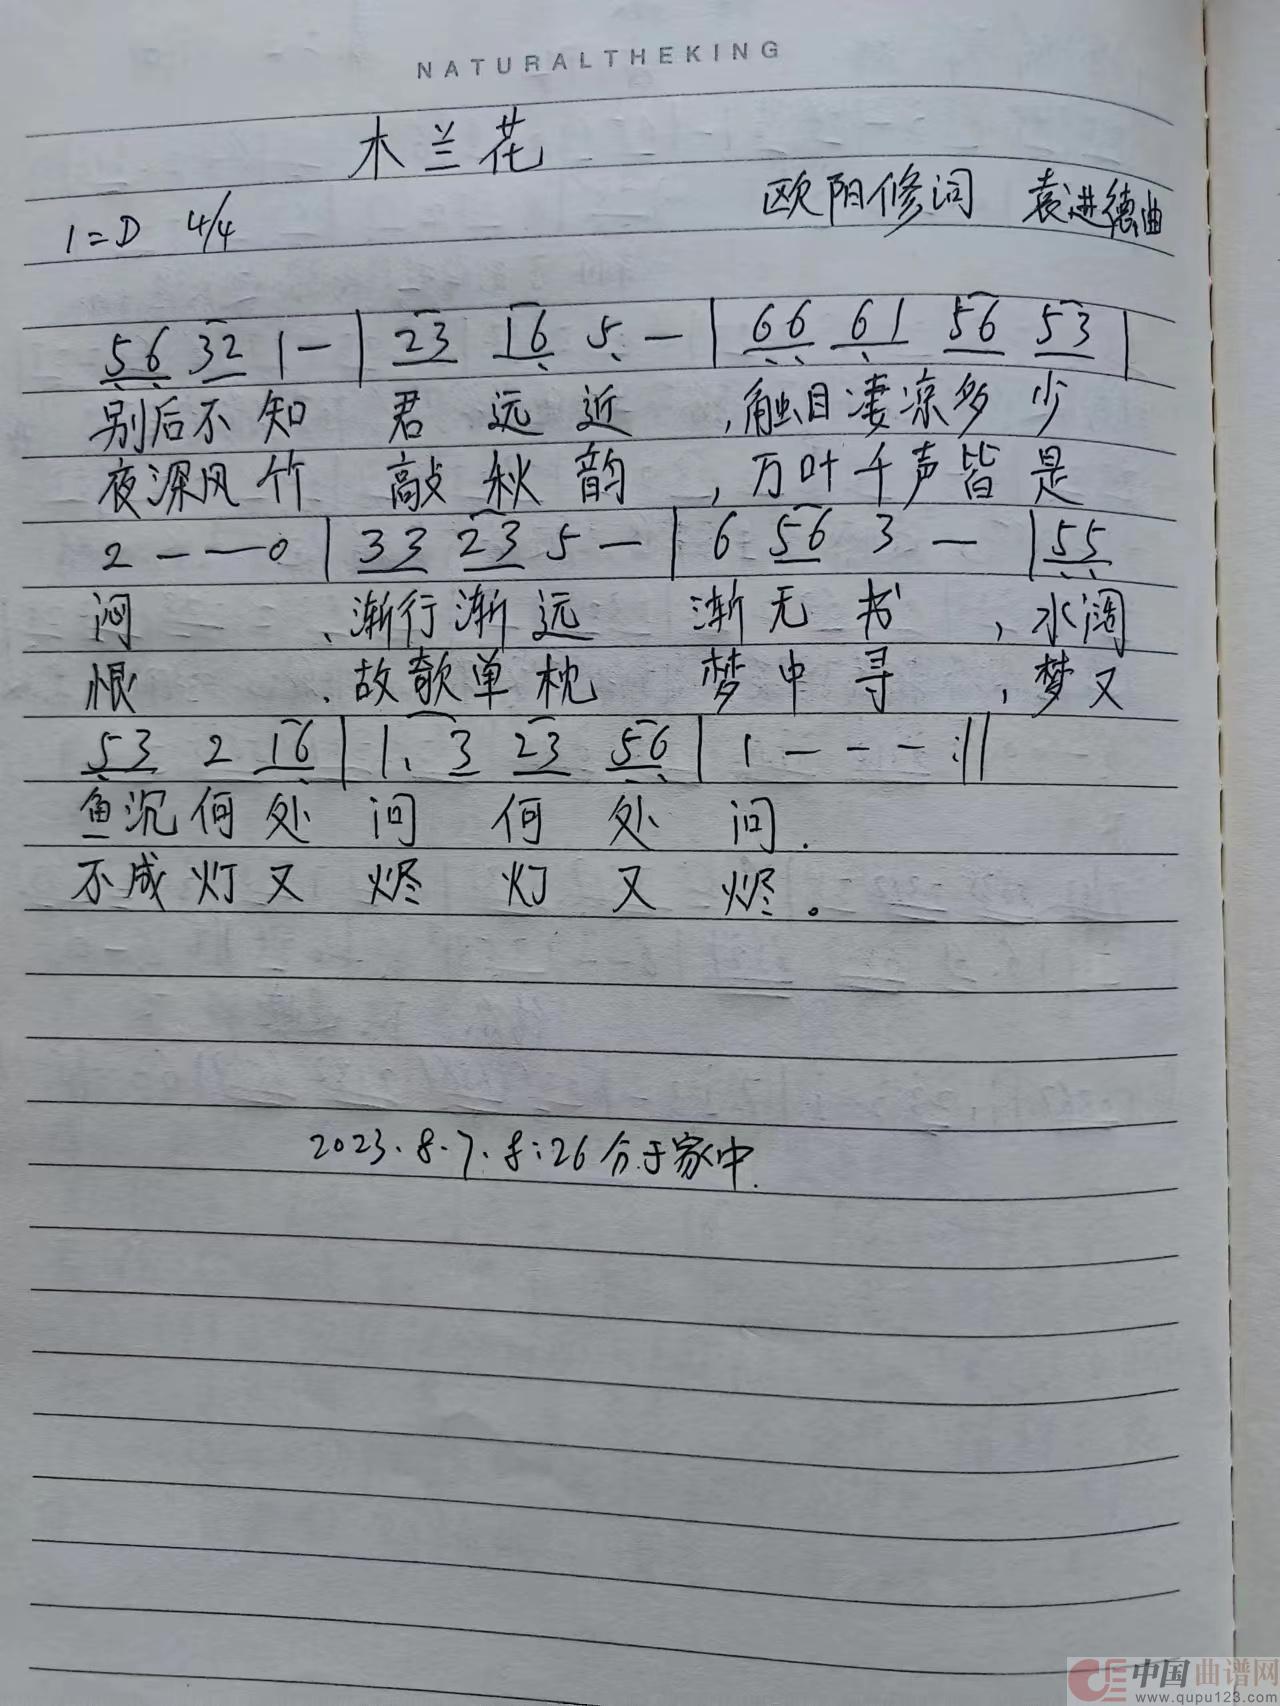 NATURALTHEKING
木兰花
1=D 4/4 欧阳修词 袁进德曲
56 32 1 — | 23 16 5 — | 66 61 56 53 |
别后不知 君远近 ,触目凄凉多少
夜深风竹 敲秋韵 ,万叶千声皆是
2 — — 0 | 33 23 5 — | 6 56 3 — | 55
闷 、渐行渐远 渐无书 ,水阔
恨 、故欹单枕 梦中寻 ,梦又
53 2 16 | 1. 3 23 56 | 1 — - - :||
鱼沉何处 问 何 处 问.
不成灯又 烬 灯 又 烬。
2023.8.7.8:26分于家中.
中国曲谱网
www.qupu123.com